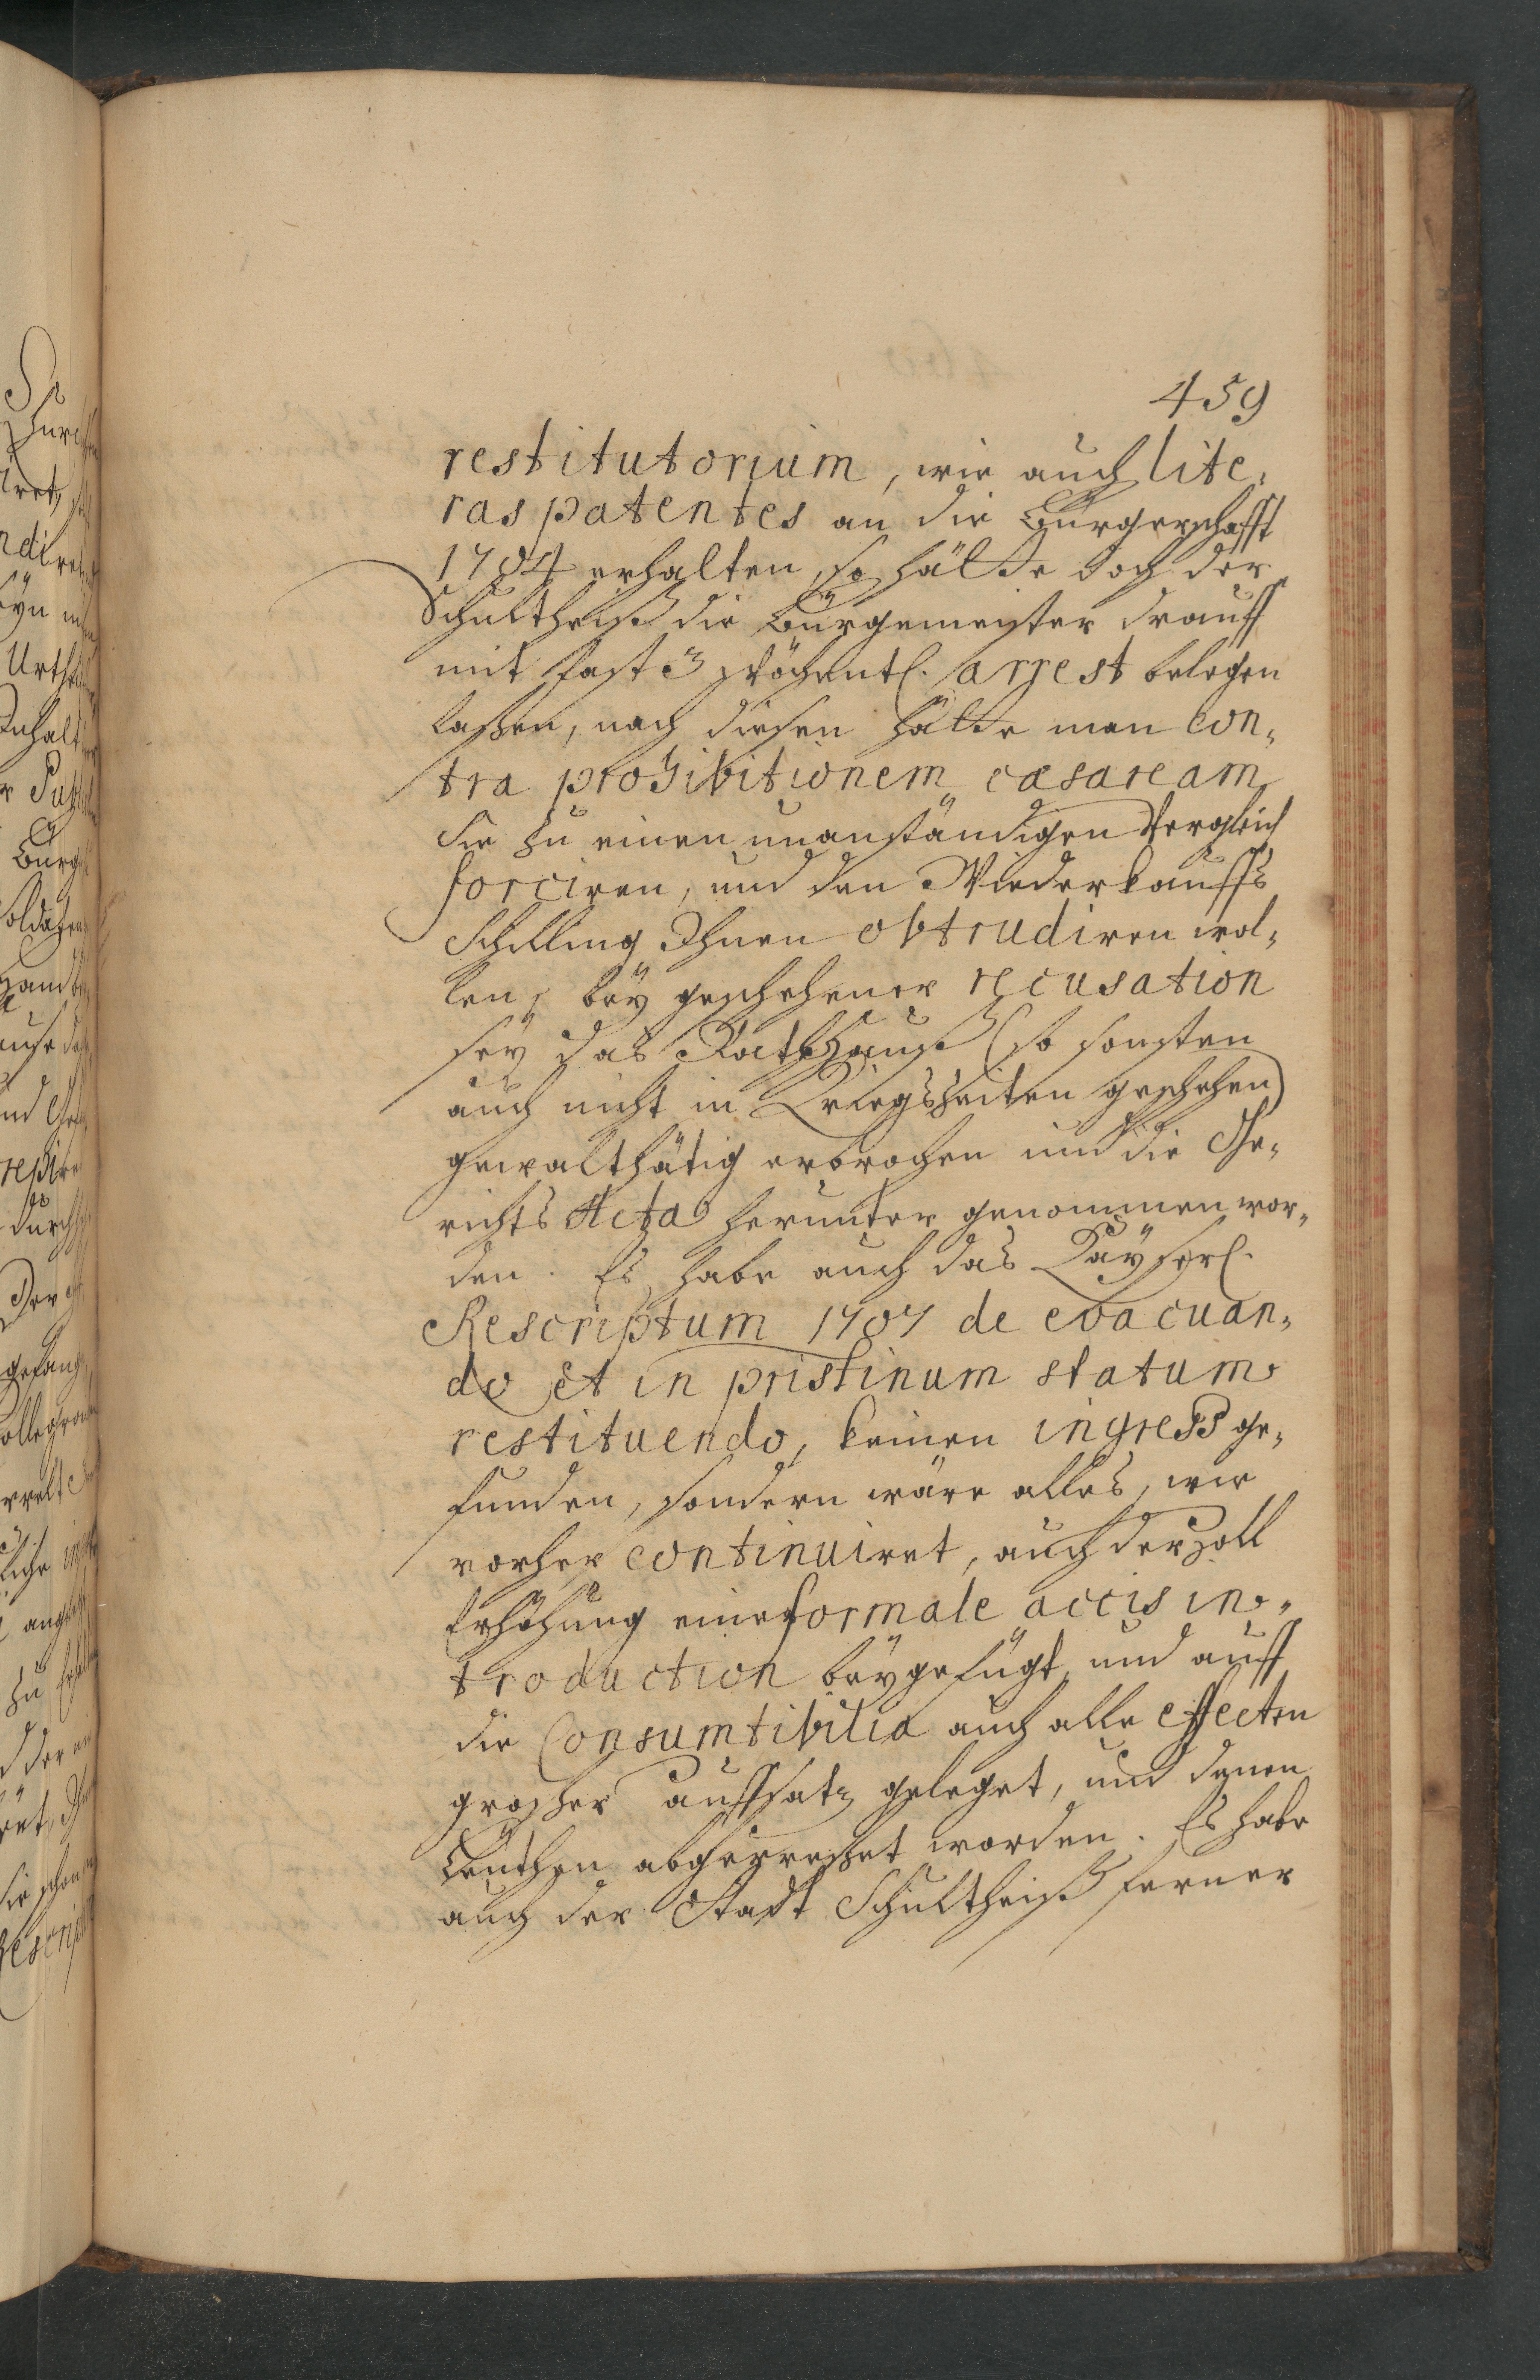 459
restitutorium, wie auch lite,
ras patentes an die Bürgerschafft
1704 erhalten, so hätte doch der
Schultheiß die Bürgemeister drauff
mit fast 3 wöchentl. arrest belegen
laßen, nach diesen hätte man con,
tra prohibitionem cæsaream
Sie zu einen unanständigen Vergleich
forciren, und den Wiederkauffs
Schilling Ihnen obtrudiren wol,
len, bey geschehener recusation
sey das Rathhauß (so sonsten
auch nicht in Kriegszeiten geschehen)
gewalthätig erbrochen und die Ge,
richts Acta herunter genommen wor,
den. Es habe auch das Kayserl.
Rescriptum 1707 de evacuan,
do et in pristinum statum
restituendo, keinen ingress ge,
funden, sondern wäre alles, wie
vorher continuiret, auch der Zoll
Erhöhung eine formale accis in,
troduction beygefügt, und auff
die Consumtibilia auch alle effecten
großer auffsatz geleget, und denen
Leuthen abgepreßet worden. Es habe
auch der Stadt Schultheiß ferner